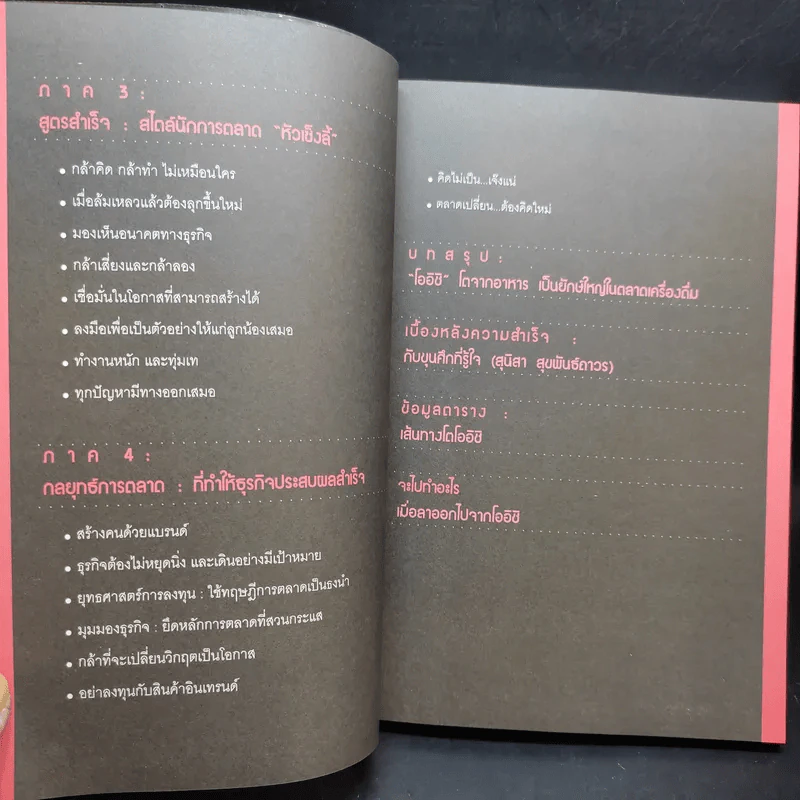 ภาค 3:
สูตรสำเร็จ : สไตล์นักการตลาด "หัวเซ็งลี้"
• กล้าคิด กล้าทำ ไม่เหมือนใคร
• เมื่อล้มเหลวแล้วต้องลุกขึ้นใหม่
• มองเห็นอนาคตทางธุรกิจ
• กล้าเสี่ยงและกล้าลอง
• เชื่อมั่นในโอกาสที่สามารถสร้างได้
• ลงมือเพื่อเป็นตัวอย่างให้แก่ลูกน้องเสมอ
• ทำงานหนัก และทุ่มเท
• ทุกปัญหามีทางออกเสมอ
ภาค 4:
กลยุทธ์การตลาด : ที่ทำให้ธุรกิจประสบผลสำเร็จ
• สร้างคนด้วยแบรนด์
• ธุรกิจต้องไม่หยุดนิ่ง และเดินอย่างมีเป้าหมาย
• ยุทธศาสตร์การลงทุน : ใช้ทฤษฎีการตลาดเป็นธงนำ
• มุมมองธุรกิจ : ยึดหลักการตลาดที่สวนกระแส
• กล้าที่จะเปลี่ยนวิกฤตเป็นโอกาส
• อย่าลงทุนกับสินค้าอินเทรนด์
• คิดไม่เป็น...เจ๊งแน่
• ตลาดเปลี่ยน...ต้องคิดใหม่
บทสรุป:
"โออิชิ" โตจากอาหาร เป็นยักษ์ใหญ่ในตลาดเครื่องดื่ม
เบื้องหลังความสำเร็จ :
กับขุนศึกที่รู้ใจ (สุนิสา สุขพันธ์ถาวร)
ข้อมูลตาราง :
เส้นทางโตโออิชิ
จะไปทำอะไร
เมื่อลาออกไปจากโออิชิ